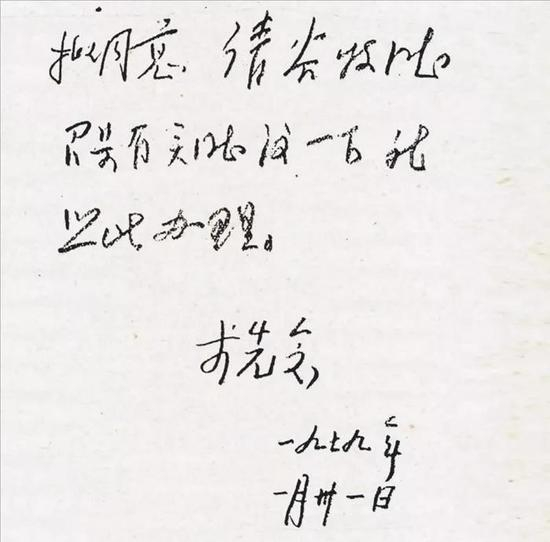 拟同意 请谷牧同志
召集有关同志议一下 就
照此办理。
李先念
一九七九年
一月卅一日